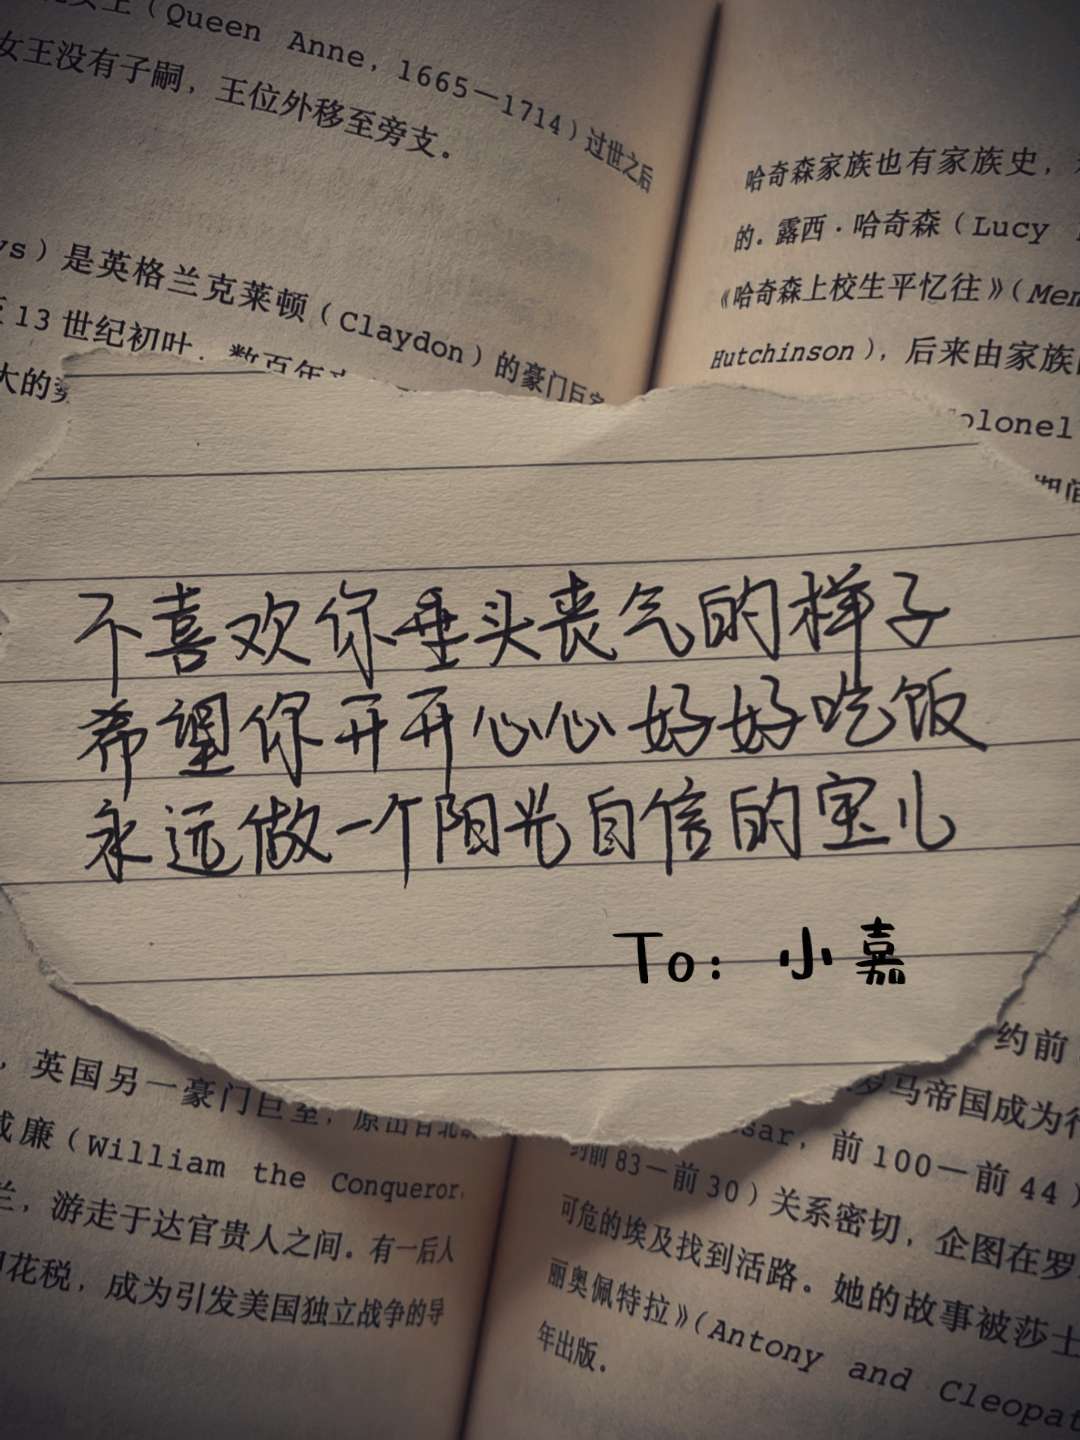 女王（Queen Anne，1665—1714）过世之后
女王没有子嗣，王位外移至旁支。
ys）是英格兰克莱顿（Claydon）的豪门巨室
13世纪初叶，数百年
大的
哈奇森家族也有家族史，
的。露西·哈奇森（Lucy
《哈奇森上校生平忆往》（Mem
Hutchinson），后来由家族
olonel
期间
不喜欢你垂头丧气的样子
希望你开开心心好好吃饭
永远做一个阳光自信的宝儿
To：小嘉
，英国另一豪门巨室，原出台北
威廉（William the Conqueror，
兰，游走于达官贵人之间。有一后人
印花税，成为引发美国独立战争的导
约前
罗马帝国成为行
sar，前100—前44）
约前83—前30）关系密切，企图在罗
可危的埃及找到活路。她的故事被莎士
丽奥佩特拉》（Antony and Cleopat
年出版。